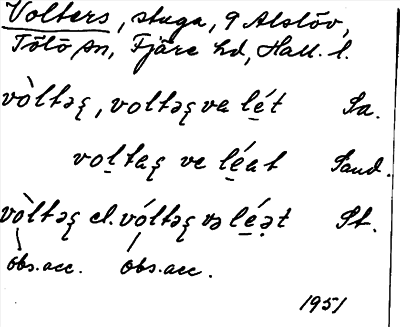 Volters, stuga, 9 Alslöv,
Tölö sn, Fjäre hd, Hall. l.
vòltəʂ, voltəʂ va lé̱t Sa.
voḻtaʂ ve lé̱at Sand.
vòltəʂ el. vóltəʂ və lé̱ə̣t St.
obs. acc. obs. acc.
1951